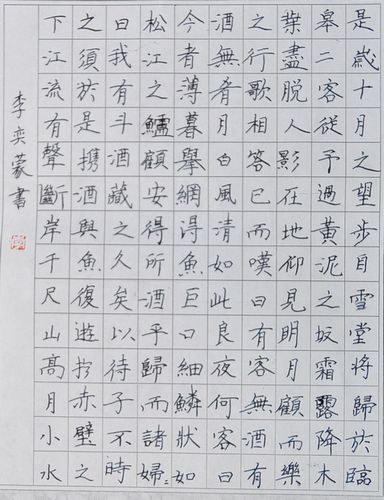 是歲十月之望步自雪堂將歸於臨
皋二客從予過黃泥之坂霜露降木
葉盡脱人影在地仰見明月顧而樂
之行歌相答已而嘆曰有客無酒有
酒無肴月白風清如此良夜何客曰
今者薄暮舉網得魚巨口細鱗狀如
松江之鱸顧安得所酒乎歸而諸婦〻
曰我有斗酒藏之久矣以待子不時
之須於是携酒與魚復遊於赤壁之
下江流有聲斷岸千尺山高月小水
李奕蒙書